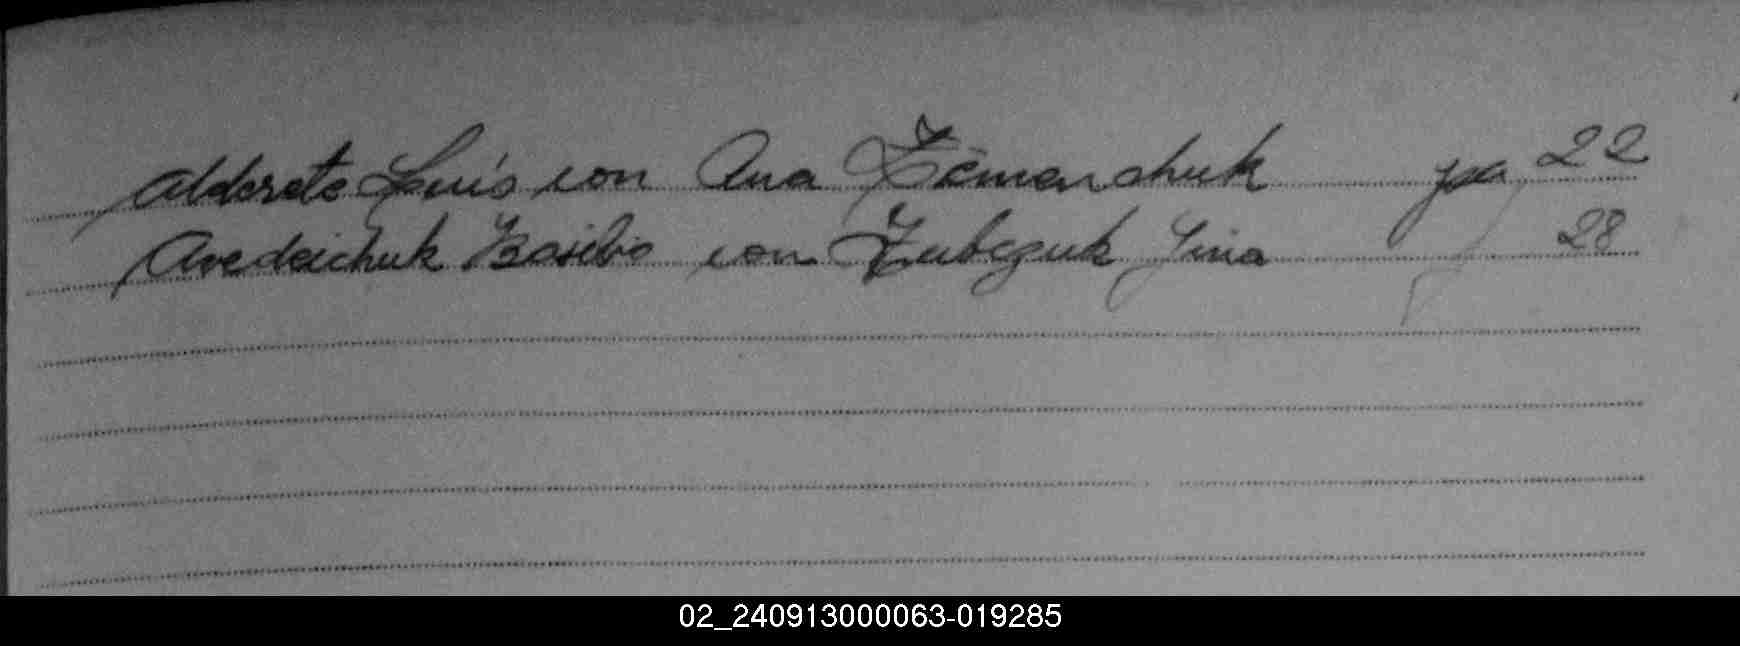 Alderete Luis con Ana Zemenchuk pa 22
Avedeichuk Basilio con Zubczuk Irina 28
02_240913000063-019285